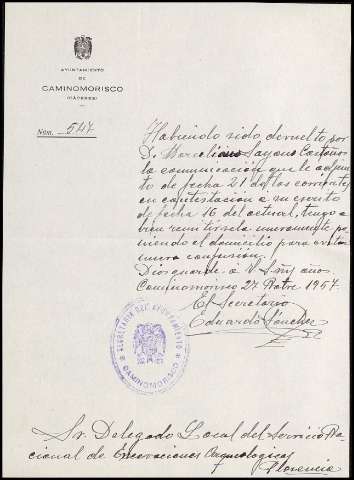 AYUNTAMIENTO
DE
CAMINOMORISCO
(CÁCERES)
Núm. 547
Habiendo sido devuelto por
D. Marceliano Sayans Castaños
la comunicación que le adjun
to de fecha 21 de los corrientes
en contestación a su escrito
de fecha 16 del actual, tengo a
bien remitírsela nuevamente po
niendo el domicilio para evitar
nueva confusión.
Dios guarde a V. S. m/s años
Caminomorisco 27 Octbre 1957.
El Secretario
Eduardo Sánchez
SECRETARIA DEL AYUNTAMIENTO
CAMINOMORISCO
Sr. Delegado Local del Servicio Na
cional de Excavaciones Arqueológicas
Plasencia